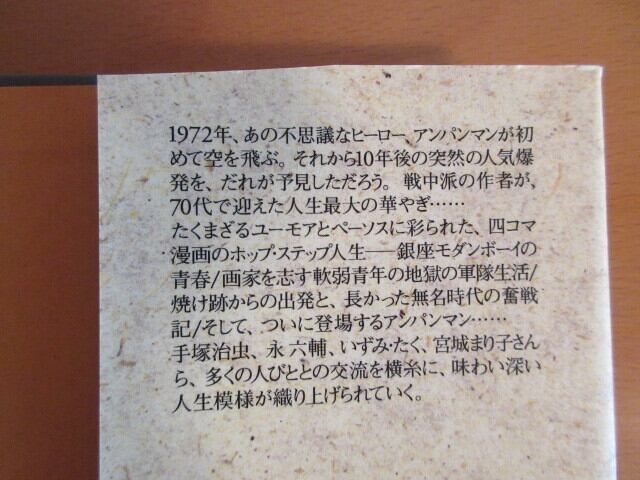 1972年、あの不思議なヒーロー、アンパンマンが初
めて空を飛ぶ。それから10年後の突然の人気爆
発を、だれが予見しただろう。戦中派の作者が、
70代で迎えた人生最大の華やぎ……
たくまざるユーモアとペーソスに彩られた、四コマ
漫画のホップ・ステップ人生──銀座モダンボーイの
青春/画家を志す軟弱青年の地獄の軍隊生活/
焼け跡からの出発と、長かった無名時代の奮戦
記/そして、ついに登場するアンパンマン……
手塚治虫、永六輔、いずみ・たく、宮城まり子さん
ら、多くの人びととの交流を横糸に、味わい深い
人生模様が織り上げられていく。